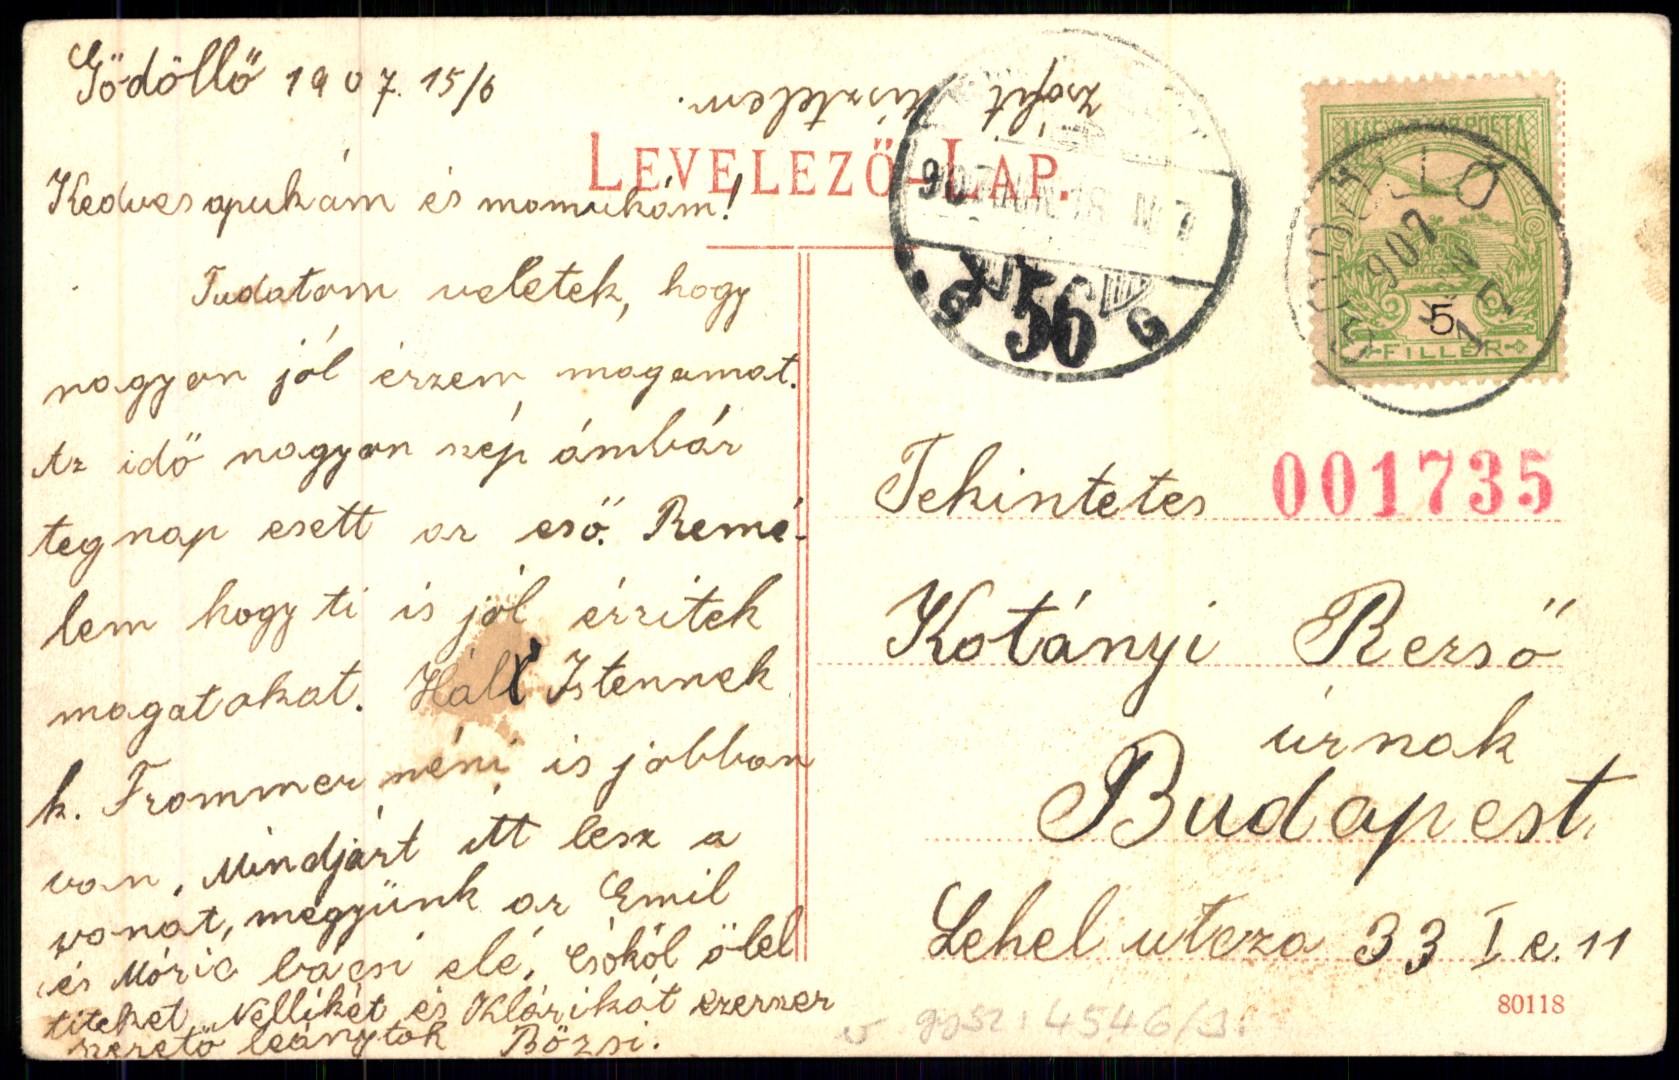 Gödöllő 1907. 15/6
Zsófit tisztelem.
LEVELEZŐ-LAP.
Kedves apukám és mamukám!
Tudatom veletek, hogy
nagyon jól érzem magamat.
Az idő nagyon szép ámbár
tegnap esett az eső. Remé-
lem hogy ti is jól érzitek
magatokat. Hál' Istennek
k. Frommer néni is jobban
van. Mindjárt itt lesz a
vonat, megyünk az Emil
és Móric bácsi elé. Csókol ölel
titeket, Nellikét és Klárikát ezerszer
szerető leánytok Bözsi.
MAGYAR KIR. POSTA
5
FILLÉR
GÖDÖLLŐ
907 JUN 15
907 JUN 15 N 7
56
001735
Tekintetes
Kotányi Rezső
úrnak
Budapest.
Lehel utcza 33 I e. 11
80118
gysz: 4546/3.